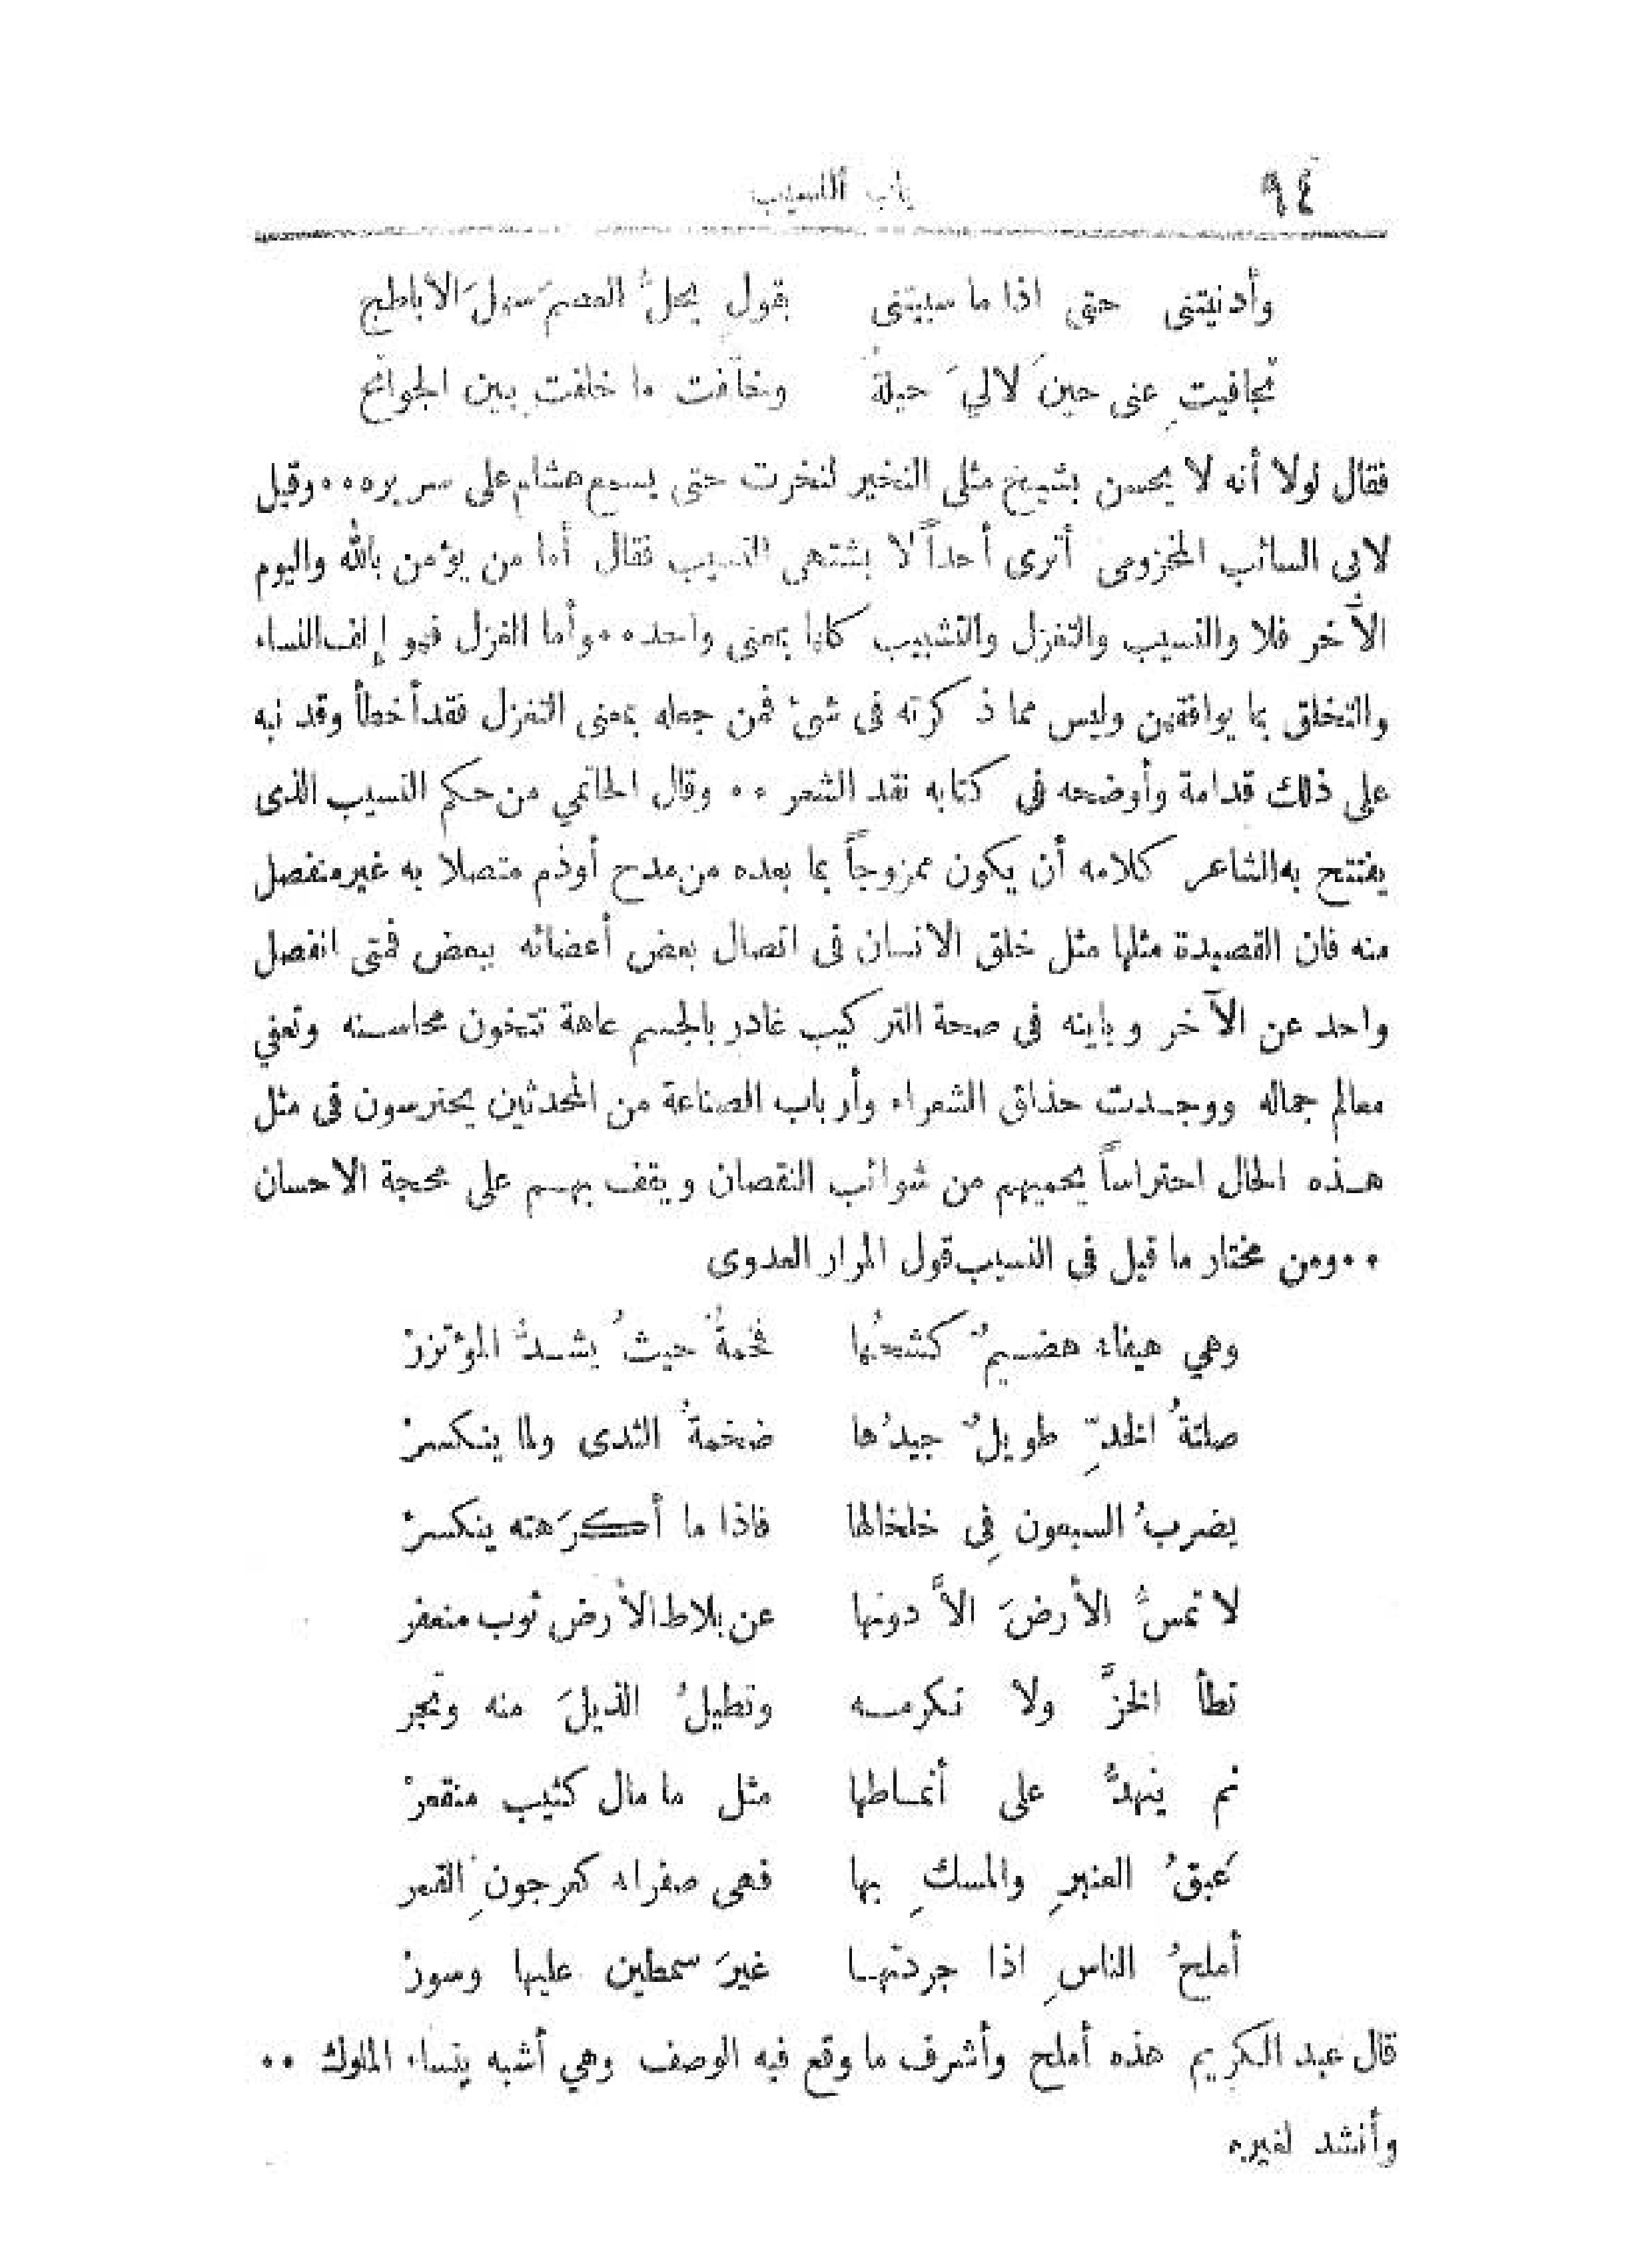 ٩٤ باب النسيب
وأدنيتنى حتى اذا ما سبيتنى بقولِ يحلُّ العصمَ سهلَ الأباطح
تجافيتِ عنى حينَ لالىَ حيلةٌ وخلفت ما خلفت بين الجوانح
فقال لولا أنه لا يحسن بشيخ مثلى النخير لنخرت حتى يسمع هشام على سريره ٠٠ وقيل
لابى السائب المخزومى أترى أحداً لا يشتهى النسيب فقال أما من يؤمن بالله واليوم
الآخر فلا والنسيب والتغزل والتشبيب كلها بمعنى واحد ٠٠ وأما الغزل فهو إلف النساء
والتخلق بما يوافقهن وليس مما ذكرته فى شئ فمن جعله بمعنى التغزل فقد أخطأ وقد نبه
على ذلك قدامة وأوضحه في كتابه نقد الشعر ٠٠ وقال الحاتمي من حكم النسيب الذى
يفتتح به الشاعر كلامه أن يكون ممزوجاً بما بعده من مدح أوذم متصلا به غير منفصل
منه فان القصيدة مثلها مثل خلق الانسان فى اتصال بعض أعضائه ببعض فمتى انفصل
واحد عن الآخر وباينه فى صحة التركيب غادر بالجسم عاهة تتخون محاسنه وتعفي
معالم جماله ووجدت حذاق الشعراء وأرباب الصناعة من المحدثين يحترسون فى مثل
هذه الحال احتراساً يحميهم من شوائب النقصان ويقف بهم على محجة الاحسان
٠٠ ومن مختار ما قيل فى النسيب قول المرار العدوى
وهي هيفاء هضيمٌ كشحُها فخمةٌ حيثُ يشدُّ المؤتزرْ
صلتةُ الخدِّ طويلٌ جيدُها ضخمةُ الثدى ولما ينكسرْ
يضربُ السبعون فِى خلخالها فاذا ما أكرَهته ينكسرْ
لا تمسُّ الأرضَ الاَّ دونها عن بلاط الأرض ثوب منعفر
تطأ الخزَّ ولا تكرمه وتطيلُ الذيلَ منه وتجر
ثم ينهدُّ على أنماطها مثل ما مال كثيب منقعرْ
عَبقُ العنبرِ والمسكِ بها فهى صفراء كعرجونِ القمر
أملحُ الناسِ اذا جردتها غيرَ سمطين عليها وسورْ
قال عبد الكريم هذه أملح وأشرف ما وقع فيه الوصف وهي أشبه بنساء الملوك ٠٠
وأنشد لغيره